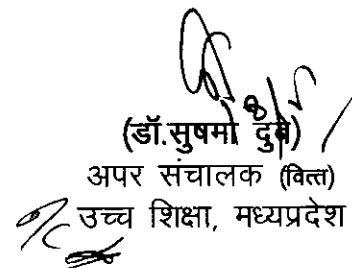 (डॉ.सुषमा दुबे)
अपर संचालक (वित्त)
उच्च शिक्षा, मध्यप्रदेश